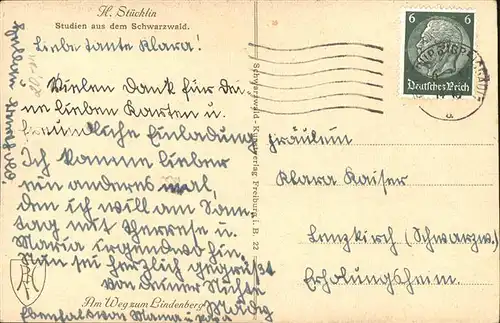 H. Stücklin
Studien aus dem Schwarzwald.
Liebe Tante Klara!
Vielen Dank für Dei
ne lieben Karten u.
freundliche Einladung
Ich komme lieber
ein anderes mal,
den ich will am Sam
tag mit Therese u.
Maria irgendwo hin.
Nun sei herzlich gegrüßt
von deiner Nichte
Mädy
Ebenfals von Mama u. Papa
Am Weg zum Lindenberg
Schwarzwald-Kunstverlag Freiburg i. B. 22
6 6
Deutsches Reich
Fräulein
Klara Kaiser
Lenzkirch (Schwarzw.)
Erholungsheim.